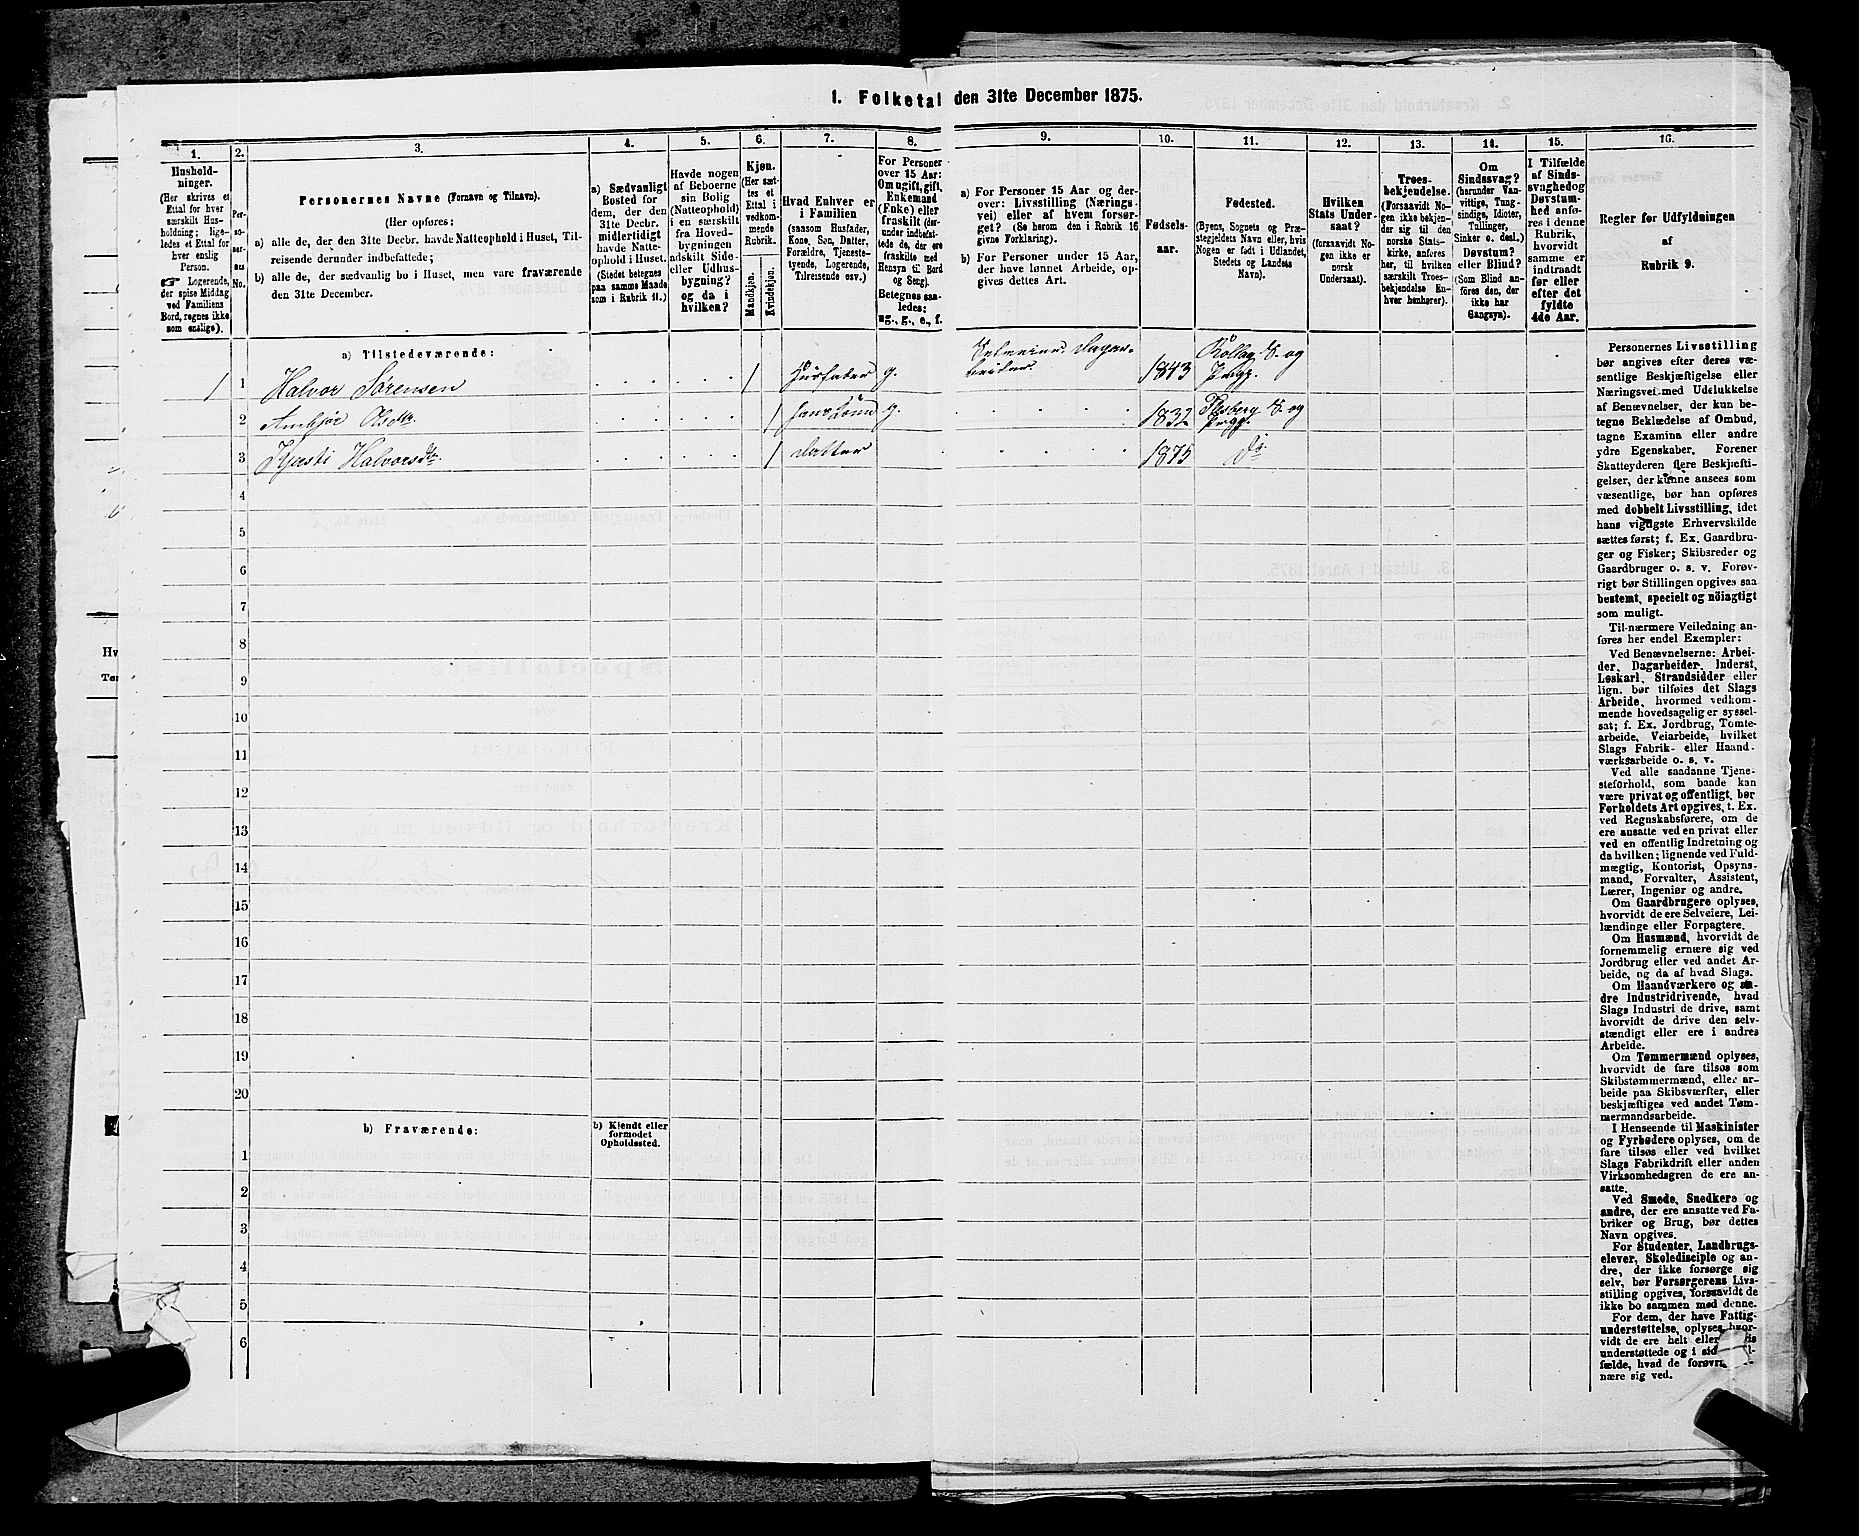 1. Folketal den 31te December 1875.
1.
Husholdninger.
(Her skrives et
Ettal for hver
særskilt Husholdning; ligeledes et Ettal for
hver enslig
Person.
Logerende,
der spise Middag
ved Familiens
Bord, regnes ikke
som enslige).
2.
Personernes
No.
3.
Personernes Navne (Fornavn og Tilnavn).
(Her opføres:
a) alle de, der den 31te Decbr. havde Natteophold i Huset, Tilreisende derunder indbefattede;
b) alle de, der sædvanlig bo i Huset, men vare fraværende
den 31te December.
4.
a) Sædvanligt
Bosted for
dem, der den
31te Decbr.
midlertidigt
havde Natteophold i Huset.
(Stedet betegnes
paa samme Maade
som i Rubrik 11.)
5.
Havde nogen
af Beboerne
sin Bolig
(Natteophold)
i en særskilt
fra Hovedbygningen
adskilt Side- eller Udhusbygning?
og da i
hvilken?
6.
Kjøn.
(Her sættes et
Ettal i
vedkommende
Rubrik.
Mandkjøn.
Kvindekjøn.
7.
Hvad Enhver er
i Familien
(saasom Husfader,
Kone, Søn, Datter,
Forældre, Tjenestetyende, Logerende,
Tilreisende osv.)
8.
For Personer
over 15 Aar:
Om ugift, gift,
Enkemand
(Enke) eller
fraskilt (derunder indbefattede de, der ere
fraskilte med
Hensyn til Bord
og Seng).
Betegnes saaledes:
ug., g., e., f.
9.
a) For Personer 15 Aar og derover: Livsstilling (Næringsvei) eller af hvem forsørget? (Se herom den i Rubrik 16
givne Forklaring).
b) For Personer under 15 Aar,
der have lønnet Arbeide, opgives dettes Art.
10.
Fødselsaar.
11.
Fødested.
(Byens, Sognets og Præstegjeldets Navn eller, hvis
Nogen er født i Udlandet,
Stedets og Landets
Navn).
12.
Hvilken
Stats Undersaat?
(foraavidt Nogen ikke er
norsk
Undersaat).
13.
Troesbekjendelse.
(Forsaavidt Nogen ikke bekjender sig til den
norske Statskirke, anføres
her, til hvilken
særskilt Troesbekjendelse Enhver henhører).
14.
Om
Sindssvag?
(herunder Vanvittige, Tungsindige, Idioter,
Tullinger,
Sinker o. desl.)
Døvstum?
eller Blind?
(Som Blind anføres den, der
ikke har
Gangsyn).
15.
I Tilfælde
af Sindssvaghed og
Døvstumhed anføres i denne
Rubrik,
hvorvidt
samme er
indtraadt
før eller
efter det
fyldte
4de Aar.
16.
Regler for Udfyldningen
af
Rubrik 9.
a) Tilstedeværende:
1 1 Halvor Sørensen 1 Husfader g. Selveier. Dagarbeider. 1843 Rollag S. og Prgj.
2 Ambjør Olsdtr. 1 hans Kone g. 1832 Flesberg S. og Prgj.
3 Kjersti Halvorsdtr. 1 Datter 1875 Do
4
5
6
7
8
9
10
11
12
13
14
15
16
17
18
19
20
b) Fraværende:
b) Kjendt eller
formodet
Opholdssted.
1
2
3
4
5
6
Personernes Livsstilling
bør angives efter deres væsentlige Beskjæftigelse eller
Næringsvei med Udelukkelse
af Benævnelser, der kun betegne Beklædelse af Ombud,
tagne Examina eller andre
ydre Egenskaber. Forener
Skatteyderen flere Beskjæftigelser, der kunne ansees som
væsentlige, bør han opføres
med dobbelt Livsstilling, idet
hans vigtigste Erhvervskilde
sættes først; f. Ex. Gaardbruger og Fisker; Skibsreder og
Gaardbruger o. s. v. Forøvrigt bør Stillingen opgives saa
bestemt, specielt og nöiagtigt
som muligt.
Til nærmere Veiledning anføres her endel Exempler:
Ved Benævnelserne: Arbeider, Dagarbeider, Inderst,
Løskarl, Strandsidder eller
lign. bør tilføies det Slags
Arbeide, hvormed vedkommende hovedsagelig er sysselsat; f. Ex. Jordbrug, Tomtearbeide, Veiarbeide, hvilket
Slags Fabrik- eller Haandværksarbeide o. s. v.
Ved alle saadanne Tjenesteforhold, som baade kan
være privat og offentligt, bør
Forholdets Art opgives, t. Ex.
ved Regnskabsførere, om de
ere ansatte ved en privat eller
ved en offentlig Indretning og
da hvilken; lignende ved Fuldmægtig, Kontorist, Opsynsmand, Forvalter, Assistent,
Lærer, Ingeniør og andre.
Om Gaardbrugere oplyses,
hvorvidt de ere Selveiere, Leilændinge eller Forpagtere.
Om Husmænd, hvorvidt de
fornemmelig ernære sig ved
Jordbrug eller ved andet Arbeide, og da af hvad Slags.
Om Haandværkere og andre Industridrivende, hvad
Slags Industri de drive, samt
hvorvidt de drive den selvstændigt eller ere i andres
Arbeide.
Om Tømmermænd oplyses,
hvorvidt de fare tilsøs som
Skibstømmermænd, eller arbeide paa Skibsværfter, eller
beskjæftiges ved andet Tømmermandsarbeide.
I Henseende til Maskinister
og Fyrbødere oplyses, om de
fare tilsøs eller ved hvilket
Slags Fabrikdrift eller anden
Virksomhedsgren de ere ansatte.
Ved Smede, Snedkere og
andre, der ere ansatte ved Fabriker og Brug, bør dettes
Navn opgives.
For Studenter, Landbrugselever, Skoledisciple og andre, der ikke forsørge sig
selv, bør Forsørgerens Livsstilling opgives, forsaavidt de
ikke bo sammen med denne.
For dem, der have Fattigunderstøttelse, oplyses, hvorvidt de ere helt eller
understøttede og i
fælde, hvad de
nære sig ved.